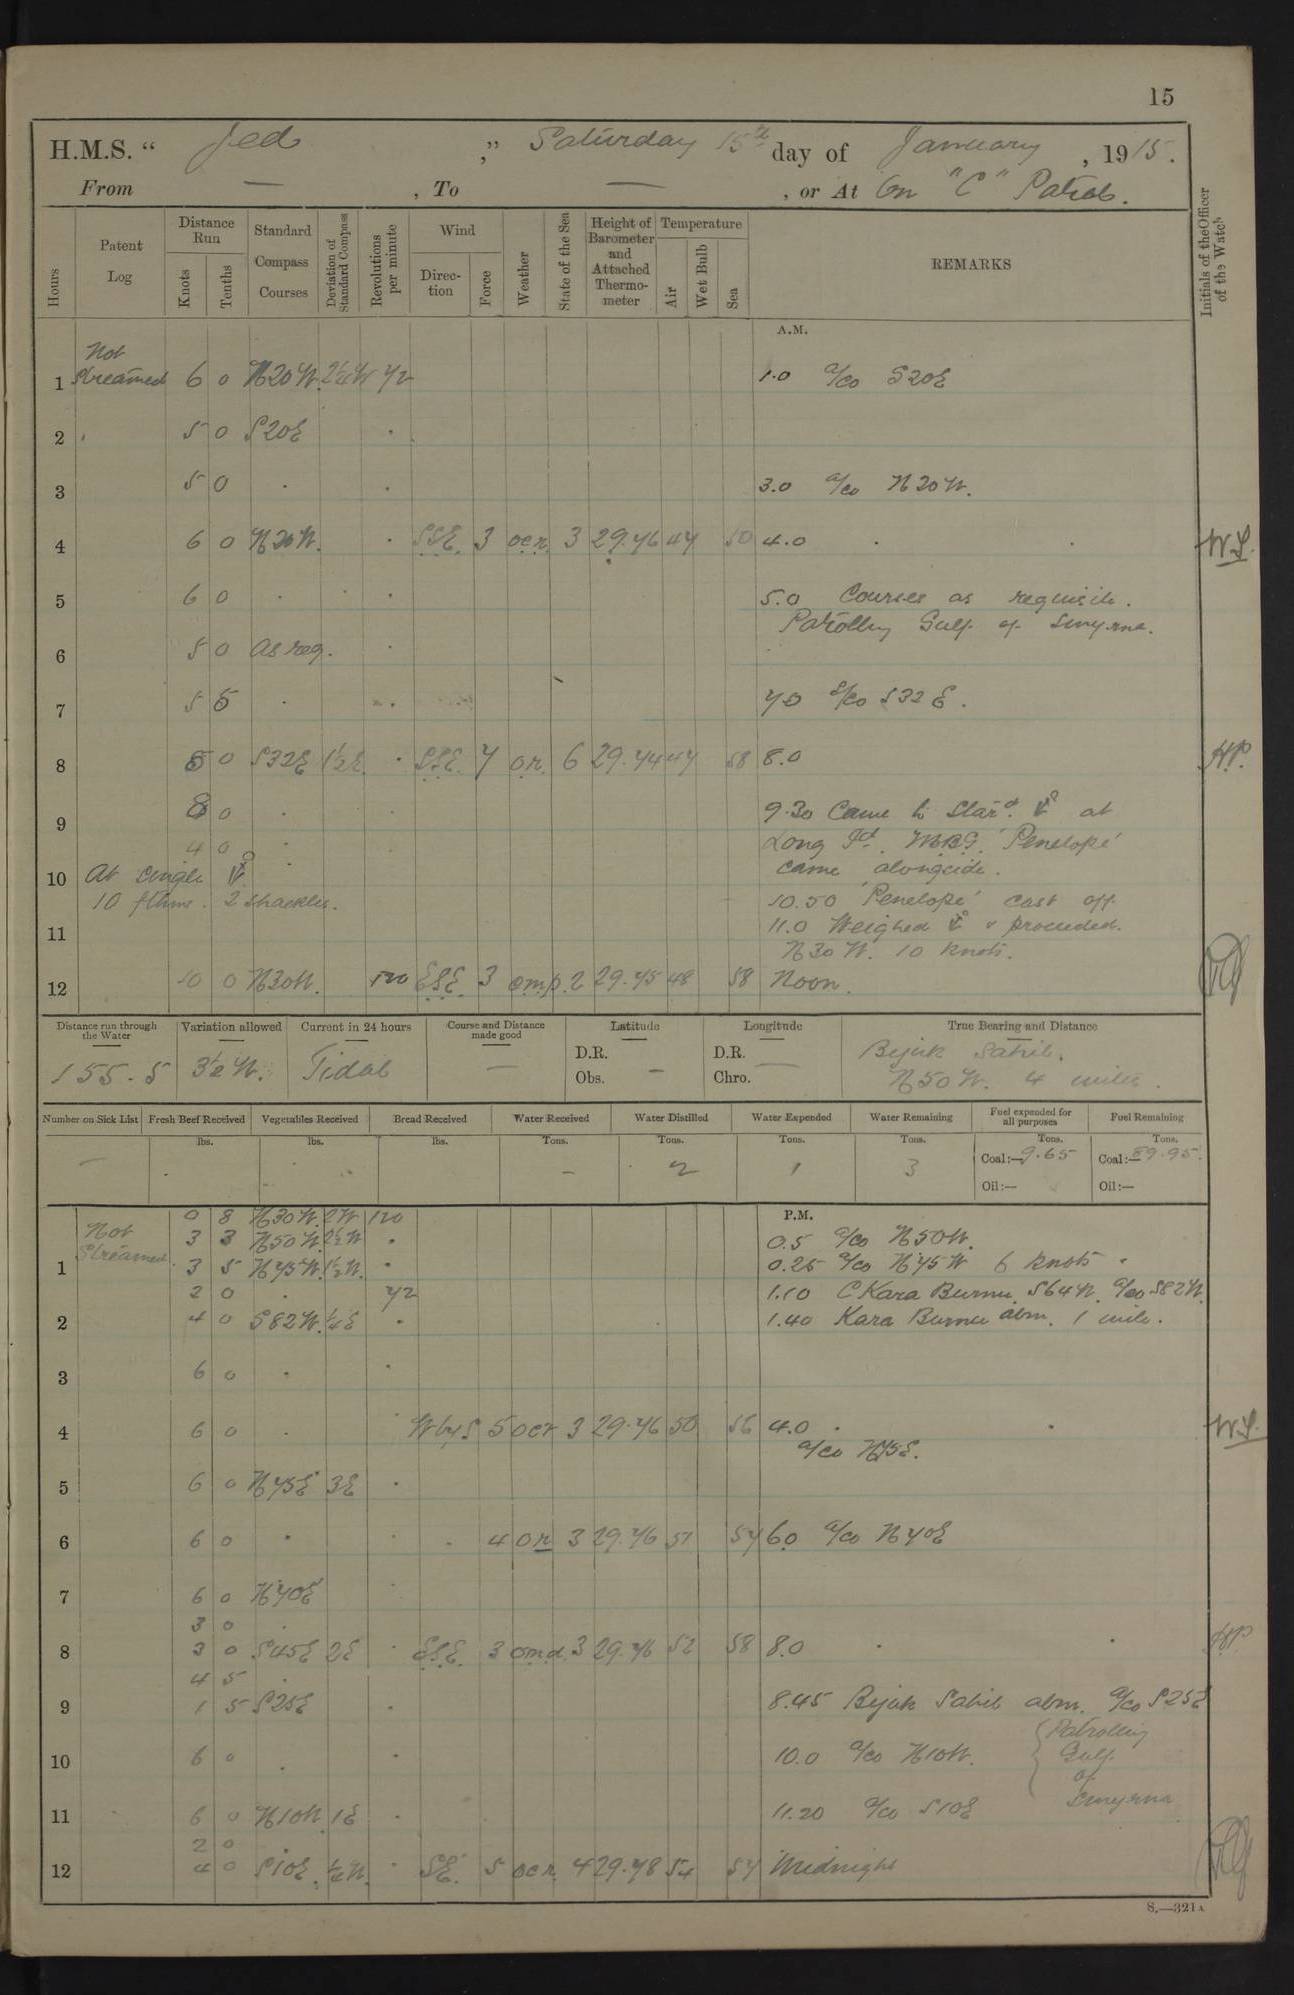 15
H.M.S. " Jed ," Saturday 15th day of January , 1915.
From — , To — , or At On "C" Patrol.
Hours
Patent Log
Distance Run
Knots
Tenths
Standard Compass Courses
Deviation of Standard Compass
Revolutions per minute
Wind
Direction
Force
Weather
State of the Sea
Height of Barometer and Attached Thermometer
Temperature
Air
Wet Bulb
Sea
REMARKS
Initials of the Officer of the Watch
A.M.
Not
1 Streamed 6 0 N20W. 2¼W 72 1.0 a/co S20E
2 5 0 S20E
3 5 0 3.0 a/co N20W.
4 6 0 N20W. SSE. 3 ocr. 3 29.46 47 50 4.0 WS.
5 6 0 5.0 Courses as requisite.
Patrolling Gulf of Smyrna.
6 5 0 as req.
7 5 5 7.0 a/co S32E.
8 5 0 S32E 1½E. SSE. 7 or. 6 29.44 47 58 8.0 HP.
9 8 0 9.30 Came to Starbd. ⚓ at
4 0 Long Id. MBG. 'Penelope'
10 At single ⚓ came alongside.
10 fthms. 2 shackles. 10.50 'Penelope' cast off
11 11.0 Weighed ⚓ & proceeded.
N30W. 10 knots.
12 10 0 N30W. 120 ESE. 3 omp. 2 29.45 48 58 Noon.
Distance run through the Water
Variation allowed
Current in 24 hours
Course and Distance made good
Latitude
Longitude
True Bearing and Distance
155.5 3½W. Tidal — D.R. Obs. — D.R. Chro. — Bejuk Sahib.
N50W. 4 miles.
Number on Sick List
Fresh Beef Received
Vegetables Received
Bread Received
Water Received
Water Distilled
Water Expended
Water Remaining
Fuel expended for all purposes
Fuel Remaining
lbs. lbs. lbs. Tons. Tons. Tons. Tons. Tons. Tons.
— — 2 1 3 Coal:—9.65 Coal:—89.95.
Oil:— Oil:—
P.M.
0 8 N30W. 2W 120
Not 3 3 N50W. 2½W 0.5 a/co N50W.
1 Streamed. 3 5 N75W. 1½W. 0.25 a/co N75W 6 knots
2 0 72 1.10 C Kara Burnu S64W. a/co S82W.
2 4 0 S82W. ¼E 1.40 Kara Burnu abm. 1 mile.
3 6 0
4 6 0 WbyS 5 ocr 3 29.46 50 56 4.0
a/co N75E.
WS.
5 6 0 N75E 3E
6 6 0 4 or 3 29.46 51 57 6.0 a/co N70E
7 6 0 N70E
3 0
8 3 0 S45E 2E ESE. 3 omd. 3 29.46 52 58 8.0 HP
4 5
9 1 5 S25E 8.45 Bejuk Sahib abm. a/co S25E
10 6 0 10.0 a/co N10W. { Patrolling Gulf of Smyrna
11 6 0 N10W. 1E 11.20 a/co S10E
2 0
12 4 0 S10E. ¼W. SE. 5 ocr. 4 29.48 54 57 Midnight
S.—321A